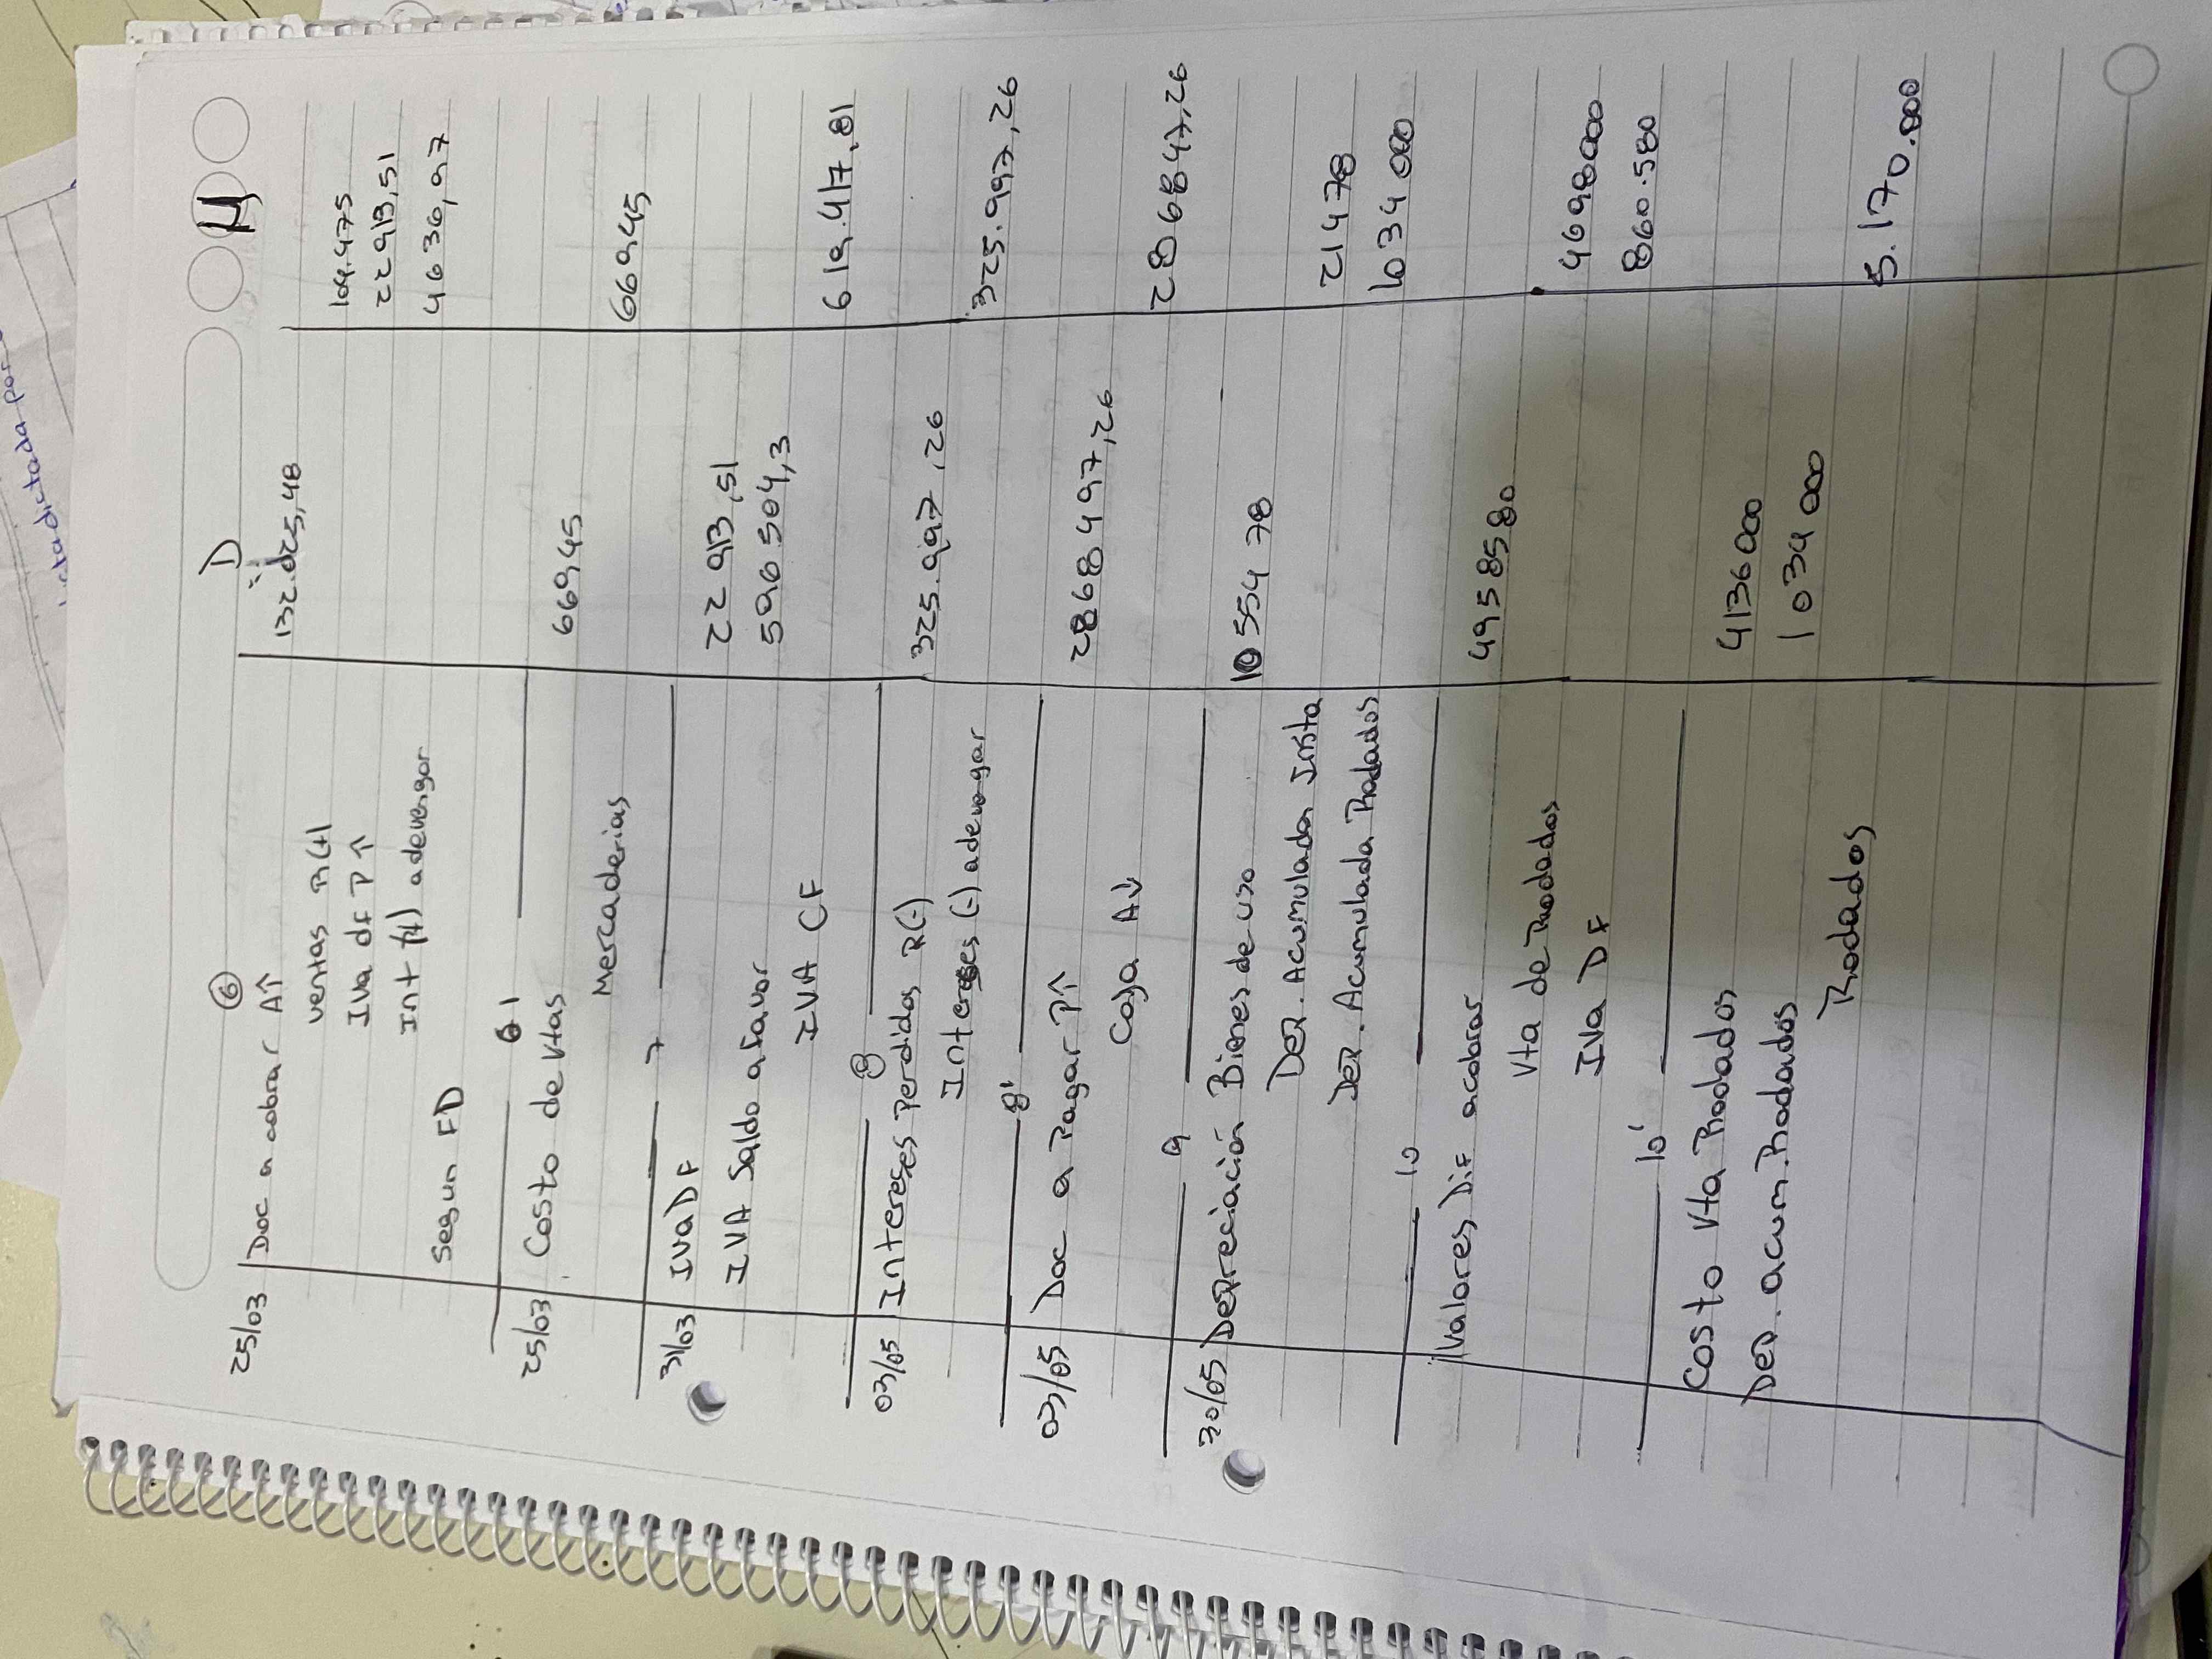 D H
25/03 ⑥
Doc a cobrar A↑ 132.025,48
Ventas R(+) 109.475
Iva df P↑ 22 913,51
Int (+) a devengar 4636,97
Segun FD
6'
25/03 Costo de Vtas 66945
Mercaderias 66945
7
31/03 IVA DF 22 913,51
IVA Saldo a favor 596504,3
IVA CF 619.417,81
8
03/05 Intereses Perdidos R(-) 325.997,26
Intereses (-) a devengar 325.997,26
8'
03/05 Doc a Pagar P↑ 2868497,26
Caja A↓ 2868847,26
9
30/05 Depreciación Bienes de uso 1055478
Dep. Acumulada Insta 21478
Dep. Acumulada Rodados 1034000
10
Valores Dif a cobrar 4958580
Vta de Rodados 4698000
Iva DF 860.580
10'
Costo Vta Rodados 4136000
Dep. acum. Rodados 1034000
Rodados 5.170.000
ctadictada por